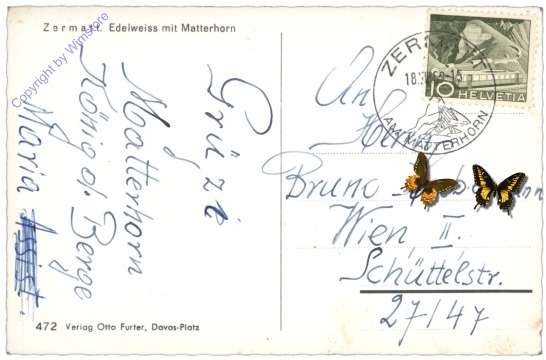 Zermatt. Edelweiss mit Matterhorn
Copyright by Wimstore
Grüzi
Matterhorn
König d. Berge
Maria
472 Verlag Otto Furter, Davos-Platz
10 HELVETIA
ZERMATT
AM MATTERHORN
An
Herrn
Bruno
Wien II.
Schüttelstr.
27/47